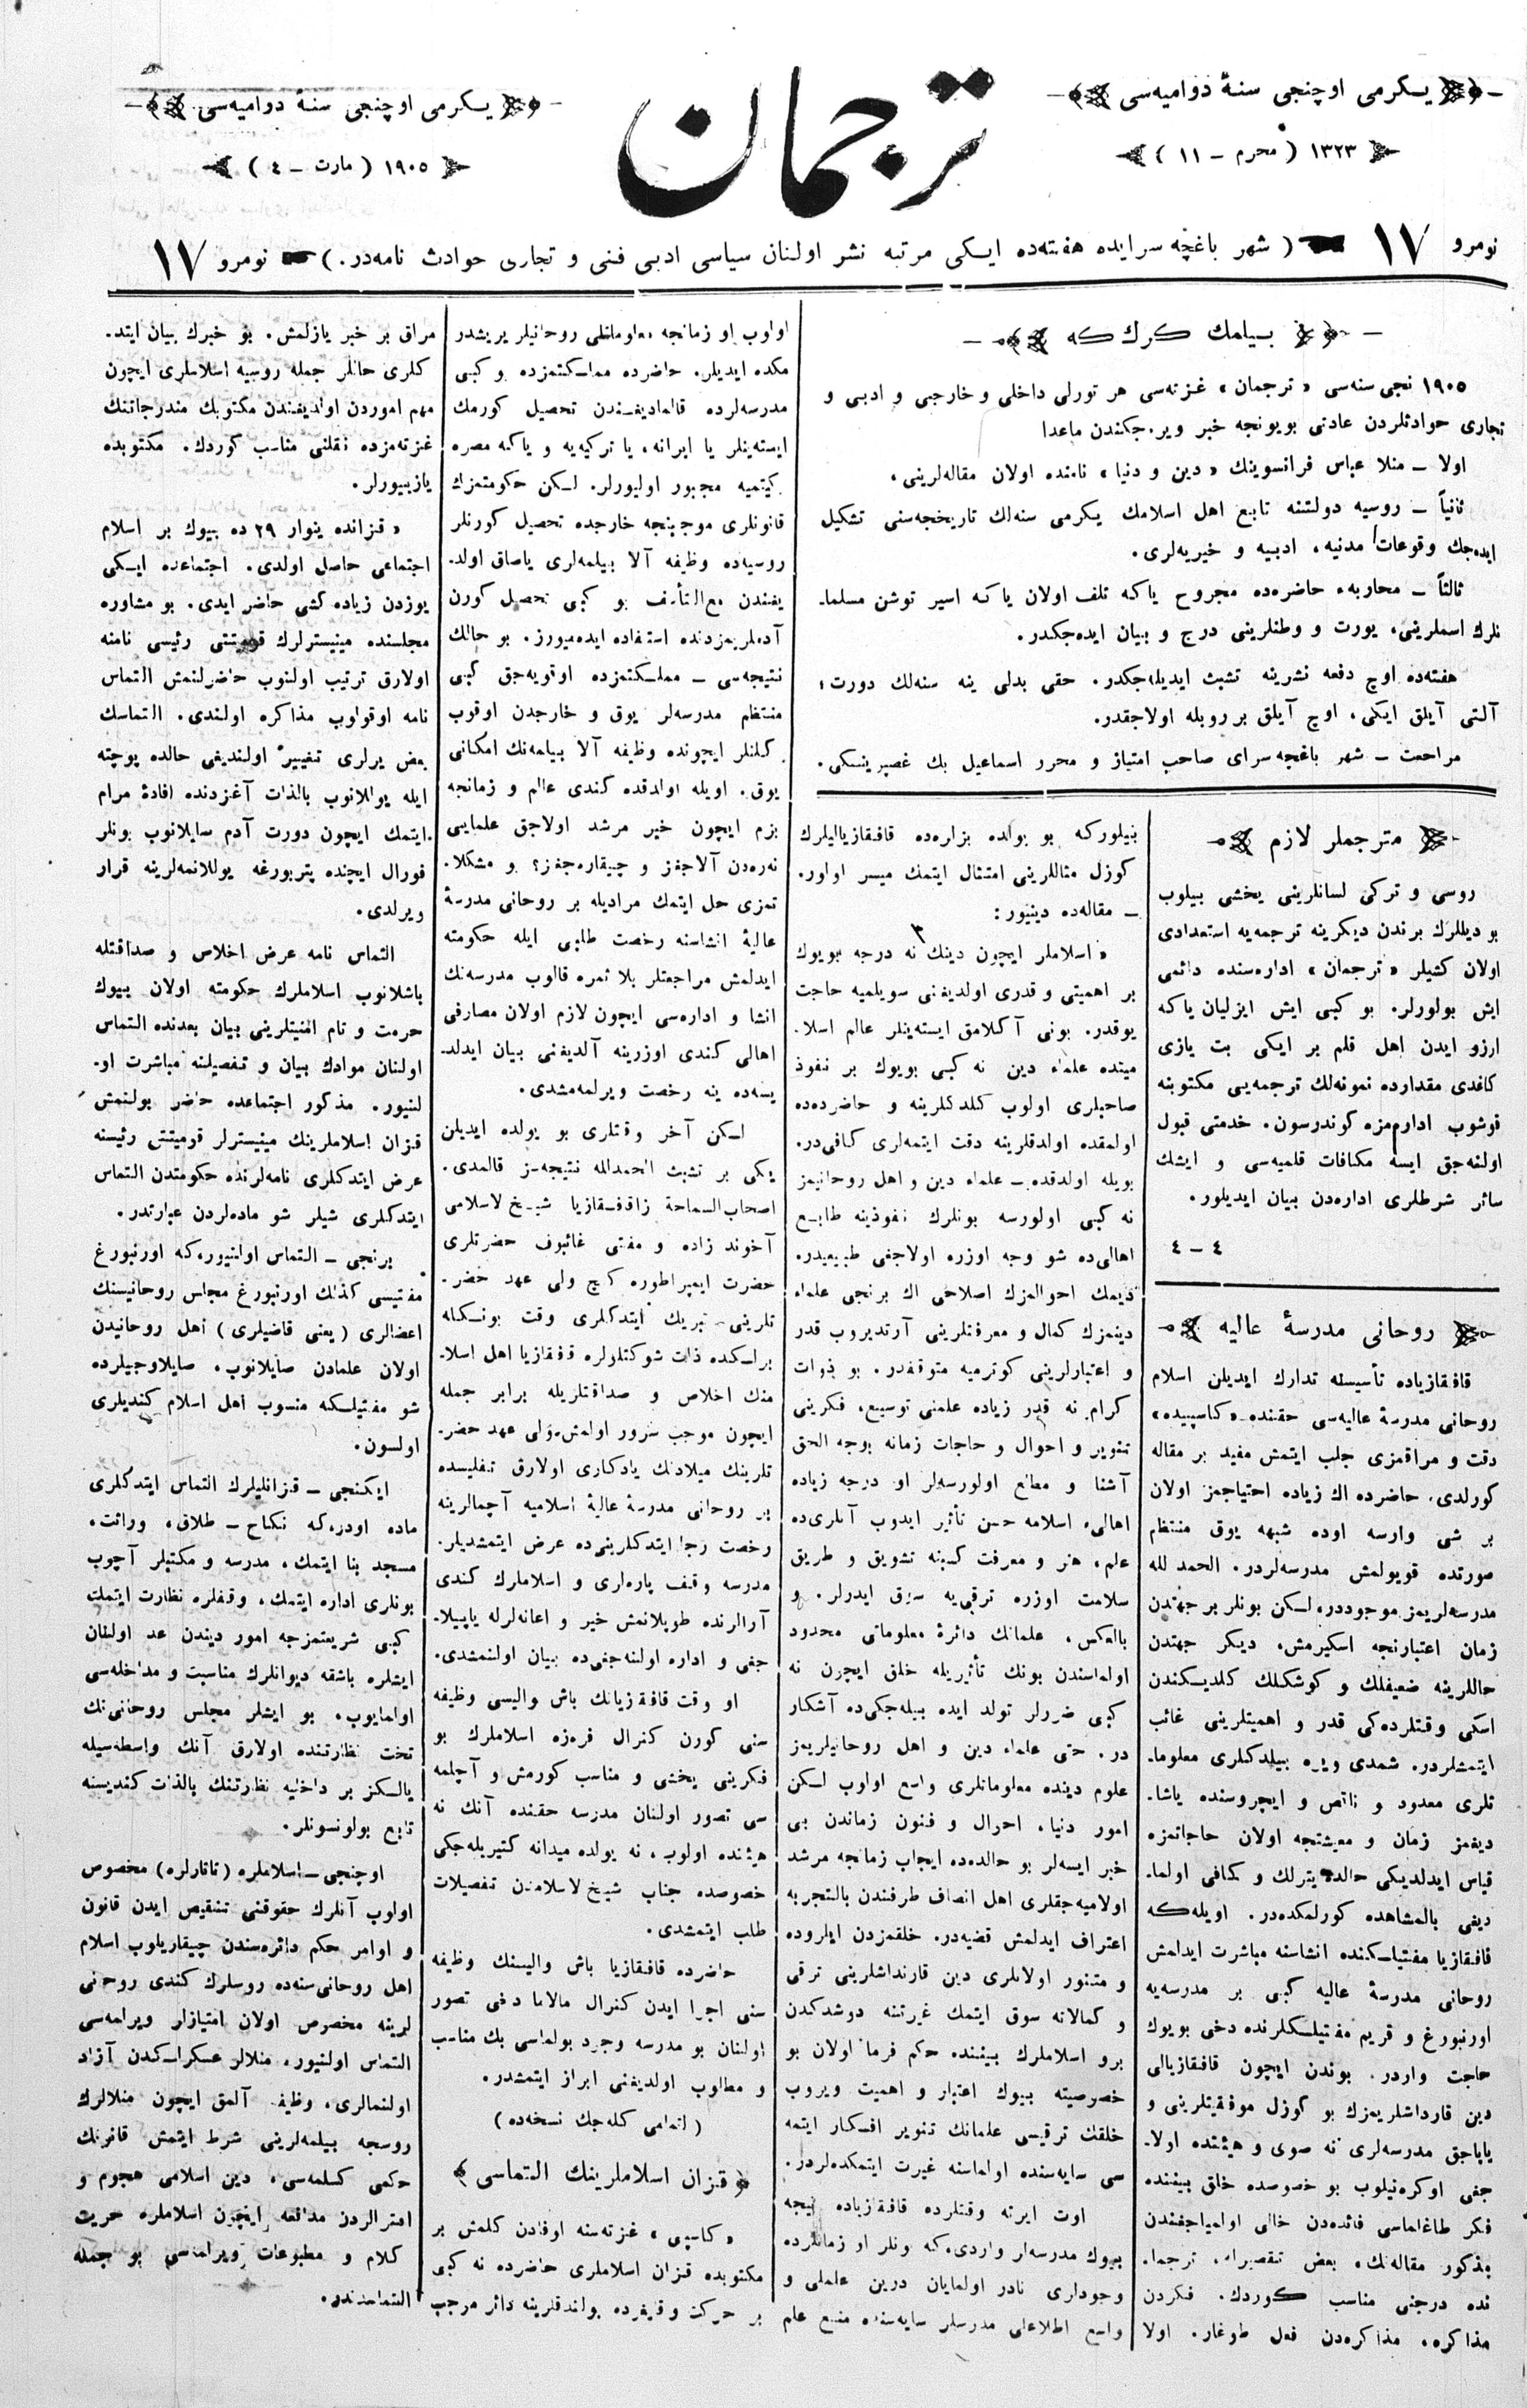 يكرمى اوچنجى سنۀ دواميه‌سى
١٣٢٣ ( محرم ـ ١١ )
ترجمان
يكرمى اوچنجى سنۀ دواميه‌سى
١٩٠٥ ( مارت ـ ٤ )
نومرو ١٧ ( شهر باغچه سرايده هفته‌ده ايكى مرتبه نشر اولنان سياسى ادبى فنى و تجارى حوادث نامه‌در. ) نومرو ١٧
بيلمك كرك كه
١٩٠٥ نجى سنه‌سى « ترجمان » غزته‌سى هر تورلى داخلى و خارجى و ادبى و
تجارى حوادثلردن عادتى بويونجه خبر ويره‌جكندن ماعدا
اولا ـ منلا عباس فرانسوينك « دين و دنيا » نامنده اولان مقاله‌لرينى،
ثانياً ـ روسيه دولتنه تابع اهل اسلامك يكرمى سنه‌لك تاريخچه‌سنى تشكيل
ايده‌جك وقوعات مدنيه، ادبيه و خيريه‌لرى.
ثالثاً ـ محاربهء حاضره‌ده مجروح ياكه تلف اولان ياكه اسير توشن مسلما-
نلرك اسملرينى، يورت و وطنلرينى درج و بيان ايده‌جكدر.
هفته‌ده اوچ دفعه نشرينه تشبث ايديله‌جكدر. حقى بدلى ينه سنه‌لك دورت؛
آلتى آيلق ايكى، اوچ آيلق بر روبله اولاجقدر.
مراجعت ـ شهر باغچه سراى صاحب امتياز و محرر اسماعيل بك غصپرينسكى.
مترجملر لازم
روسى و تركى لسانلرينى يخشى بيلوب
بو ديللرك برندن ديكرينه ترجمه‌يه استعدادى
اولان كشيلر « ترجمان » اداره‌سنده دائمى
ايش بولورلر. بو كبى ايش ايزليان ياكه
ارزو ايدن اهل قلم بر ايكى بت يازى
كاغدى مقدارده نمونه‌لك ترجمه‌يى مكتوبنه
قوشوب اداره‌مزه كوندرسون. خدمتى قبول
اولنه‌جق ايسه مكافات قلميه‌سى و ايشك
سائر شرطلرى اداره‌دن بيان ايديلور.
٤ ـ ٤
روحانى مدرسۀ عاليه
قافقازياده تأسيسنه تدارك ايديلن اسلام
روحانى مدرسۀ عاليه‌سى حقنده «كاسپيده»
دقت و مراقمزى جلب ايتمش مفيد بر مقاله
كورلدى. حاضرده اك زياده احتياجمز اولان
بر شى وارسه اوده شبهه يوق منتظم
صورتده قويولمش مدرسه‌لردر. الحمد لله
مدرسه‌لريمز موجوددر، لسكن بونلر بر جهتدن
زمان اعتبارنجه اسكيرمش، ديكر جهتدن
حاللرينه ضعيفلك و كوشكلك كلديكندن
اسكى وقتلرده‌كى قدر و اهميتلرينى غائب
ايتمشلردر. شمدى ويره بيلدكلرى معلوما-
تلرى معدود و ناقص و ايچروسنده ياشا-
ديغمز زمان و معيشتجه اولان حاجاتمزه
قياس ايدلديكى حالده يترلك و كافى اولما-
ديغى بالمشاهده كورلمكده‌در. اويله‌كه
قافقازيا مفتيلكنده انشاسنه مباشرت ايدلمش
روحانى مدرسۀ عاليه كبى بر مدرسه‌يه
اورنبورغ و قريم مفتيلكلرنده دخى بويوك
حاجت واردر. بوندن ايچون قافقازيالى
دين قارداشلريمزك بو كوزل موفقيتلرينى و
ياپاجق مدرسه‌لرى نه صوى و هيئتده اولا-
جغى اوكره‌نيلوب بو خصوصده خلق بيننده
فكر طاغلماسى فائده‌دن خالى اولمياجغندن
مذكور مقاله‌نك، بعض ترجما-
نده درجنى مناسب كوردك. فكردن
مذاكره، مذاكره‌دن فعل طوغار. اولا
بيلوركه بو يولده بزلره‌ده قافقازياليلرك
كوزل مثاللرينى امتثال ايتمك ميسر اولور.
ـ مقاله‌ده دينيور:
« اسلاملر ايچون دينك نه درجه بويوك
بر اهميتى و قدرى اولديغنى سويلميه حاجت
يوقدر. بونى آكلامق ايسته‌ينلر عالم اسلا-
ميتده علماء دين نه كبى بويوك بر نفوذ
صاحبلرى اولوب كلدكلرينه و حاضرده‌ده
اولمقده اولدقلرينه دقت ايتمه‌لرى كافى‌در.
بويله اولدقده ـ علماء دين و اهل روحانيمز
نه كبى اولورسه بونلرك نفوذينه طابع
اهالى‌ده شو وجه اوزره اولاجغى طبيعيدر.
ديمك احوالمزك اصلاحى اك برنجى علماء
دينمزك كمال و معرفتلرينى آرتديروب قدر
و اعتبارلرينى كوترميه متوقفدر. بو ذوات
كرام نه قدر زياده علمنى توسيع، فكرينى
تنوير و احوال و حاجات زمانه بوجه الحق
آشنا و مطلع اولورسه‌لر او درجه زياده
اهالىء اسلامه حسن تأثير ايدوب آنلرى‌ده
علم، هنر و معرفت كسبنه تشويق و طريق
سلامت اوزره ترقى‌يه سوق ايدرلر. و
بالعكس، علمانك دائرۀ معلوماتى محدود
اولماسندن بونك تأثيريله خلق ايچون نه
كبى ضررلر تولد ايده بيله‌جكى‌ده آشكار
در. حتى علماء دين و اهل روحانيلريمز
علوم دينده معلوماتلرى واسع اولوب لسكن
امور دنيا، احوال و فنون زماندن بى
خبر ايسه‌لر بو حالده‌ده ايجاب زمانجه مرشد
اولاميه‌جقلرى اهل انصاف طرفندن بالتجربه
اعتراف ايدلمش قضيه‌در. خلقمزدن ايلروده
و متنور اولانلرى دين قارنداشلرينى ترقى
و كمالاته سوق ايتمك غيرتنه دوشدكدن
برو اسلاملرك بيننده حكم فرما اولان بو
خصوصيته بيوك اعتبار و اهميت ويروب
خلقك ترقيسى علمانك تنوير افسكار ايتمه
سى سايه‌سنده اولماسنه غيرت ايتمكده‌لردر.
اوت ايرته وقتلرده قافقازياده نيجه
بيوك مدرسه‌لر واردى‌كه بونلر او زمانلرده
وجودارى نادر اولمايان درين علملى و
واسع اطلاعلى مدرسلر سايه‌سنده منبع علم
اولوب او زمانجه معلوماتلى روحانيلر يريشدر
مكده ايديلر. حاضرده مملكتمزده بو كبى
مدرسه‌لرده قالماديغندن تحصيل كورمك
ايسته‌ينلر يا ايرانه، يا تركيه‌يه و ياكه مصره
كيتميه مجبور اوليورلر. لسكن حكومتمزك
قانونلرى موجبنجه خارجده تحصيل كورنلر
روسيه‌ده وظيفه آلا بيلمه‌لرى ياصاق اولد-
يغندن مع‌التأسف بو كبى تحصيل كورن
آدملريمزدنده استفاده ايده‌ميورز. بو حالك
نتيجه‌سى ـ مملكتمزده اوقويه‌جق كبى
منتظم مدرسه‌لر يوق و خارجدن اوقوب
كلنلر ايچونده وظيفه آلا بيلمه‌نك امكانى
يوق. اويله اولدقده كندى عالم و زمانجه
بزم ايچون خير مرشد اولاجق علمايى
نه‌ره‌دن آلاجغز و چيقاره‌جغز؟ بو مشكلا-
تمزى حل ايتمك مراديله بر روحانى مدرسۀ
عاليۀ انشاسنه رخصت طلبى ايله حكومته
ايدلمش مراجعتلر بلا ثمره قالوب مدرسه‌نك
انشا و اداره‌سى ايچون لازم اولان مصارفى
اهالى كندى اوزرينه آلديغنى بيان ايدلد-
يسه‌ده ينه رخصت ويرلمه‌مشدى.
لسكن آخر وقتلرى بو يولده ايديلن
يكى بر تشبث الحمدالله نتيجه‌سز قالمدى.
اصحاب‌السماحة زاقافقازيا شيخ‌لاسلامى
آخوند زاده و مفتى غائبوف حضرتلرى
حضرت ايمپراطوره كچ ولى عهد حضر-
تلرينى تبريك ايتدكلرى وقت بونسكله
برلسكده ذات شوكتلولره قفقازيا اهل اسلا-
منك اخلاص و صداقتلريله برابر جمله
ايچون موجب سرور اولمش ولى عهد حضر-
تلرينك ميلادنك يادكارى اولارق تفليسده
بر روحانى مدرسۀ عاليۀ اسلاميه آچمالرينه
رخصت رجا ايتدكلرينى‌ده عرض ايتمشديلر.
مدرسه وقف پاره‌لرى و اسلاملرك كندى
آرالرنده طوپلانمش خير و اعانه‌لرله ياپيلا-
جغى و اداره اولنه‌جغى‌ده بيان اولنمشدى.
او وقت قافقازيانك باش واليسى وظيفه
سنى كورن كنرال فره‌زه اسلاملرك بو
فكرينى يخشى و مناسب كورمش و آچلمه
سى تصور اولنان مدرسه حقنده آنك نه
هيئتده اولوب، نه يولده ميدانه كتيريله‌جكى
خصوصده جناب شيخ‌لاسلامدن تفصيلات
طلب ايتمشدى.
حاضرده قافقازيا باش واليسنك وظيفه
سنى اجرا ايدن كنرال مالاما دخى تصور
اولنان بو مدرسه وجود بولماسى بك مناسب
و مطلوب اولديغنى ابراز ايتمشدر.
( اتمامى كله‌جك نسخه‌ده )
﴿ قزان اسلاملرينك التماسى ﴾
« كاسپى » غزته‌سنه اوفادن كلمش بر
مكتوبده قزان اسلاملرى حاضرده نه كبى
بر حركت وقيغرده بولندقلرينه دائر موجب
مراق بر خبر يازلمش. بو خبرك بيان ايتد-
كلرى حاللر جمله روسيه اسلاملرى ايچون
مهم اموردن اولديغندن مكتوبك مندرجاتنك
غزته‌مزده نقلنى مناسب كوردك. مكتوبده
يازييورلر.
« قزانده ينوار ٢٩ ده بيوك بر اسلام
اجتماعى حاصل اولدى. اجتماعده ايكى
يوزدن زياده كشى حاضر ايدى. بو مشاوره
مجلسنده مينيسترلرك قوميتتى رئيسى نامنه
اولارق ترتيب اولنوب حاضرلنمش التماس
نامه اوقولوب مذاكره اولندى. التماسك
بعض يرلرى تغيير اولنديغى حالده پوچته
ايله يوللانوب بالذات آغزدنده افادۀ مرام
ايتمك ايچون دورت آدم سايلانوب بونلر
فورال ايچنده پتربورغه يوللانمه‌لرينه قرار
ويرلدى.
التماس نامه عرض اخلاص و صداقتله
باشلانوب اسلاملرك حكومته اولان بيوك
حرمت و تام امنيتلرينى بيان بعدنده التماس
اولنان موادك بيان و تفصيلنه مباشرت او-
لنيور. مذكور اجتماعده حاضر بولنمش
قزان اسلاملرينك مينيسترلر قوميتتى رئيسنه
عرض ايتدكلرى نامه‌لرنده حكومتدن التماس
ايتدكلرى شيلر شو ماده‌لردن عبارتدر.
برنجى ـ التماس اولنيوركه اورنبورغ
مفتيسى كذلك اورنبورغ مجلس روحانيسنك
اعضالرى ( يعنى قاضيلرى ) اهل روحانيدن
اولان علمادن صايلانوب، صايلاوجيلرده
شو مفتيلسكه منسوب اهل اسلام كنديلرى
اولسون.
ايكنجى ـ قزانليلرك التماس ايتدكلرى
ماده اودركه نكاح ـ طلاق، وراثت،
مسجد بنا ايتمك، مدرسه و مكتبلر آچوب
بونلرى اداره ايتمك، وقفلره نظارت ايتمك
كبى شريعتمزجه امور ديندن عد اولنان
ايشلره باشقه ديوانلرك مناسبت و مداخله‌سى
اولمايوب، بو ايشلر مجلس روحانى‌نك
تحت نظارتنده اولارق آنك واسطه‌سيله
يالسكز بر داخليه نظارتنك بالذات كنديسنه
تابع بولونسونلر.
اوچنجى ـ اسلاملره ( تاتارلره ) مخصوص
اولوب آنلرك حقوقنى تنقيص ايدن قانون
و اوامر حكم دائره‌سندن چيقاريلوب اسلام
اهل روحانى‌سنه‌ده روسلرك كندى روحانى
لرينه مخصوص اولان امتيازلر ويرلمه‌سى
التماس اولنيور، منلالر عسكرلسكدن آزاد
اولنمالرى، وظيفه آلمق ايچون منلالرك
روسجه بيلمه‌لرينى شرط ايتمش قانونك
حكمى كسلمه‌سى، دين اسلامى هجوم و
افترالردن مدافعه ايچون اسلاملره حريت
كلام و مطبوعات ويرلماسى بو جمله
التماسدندر.